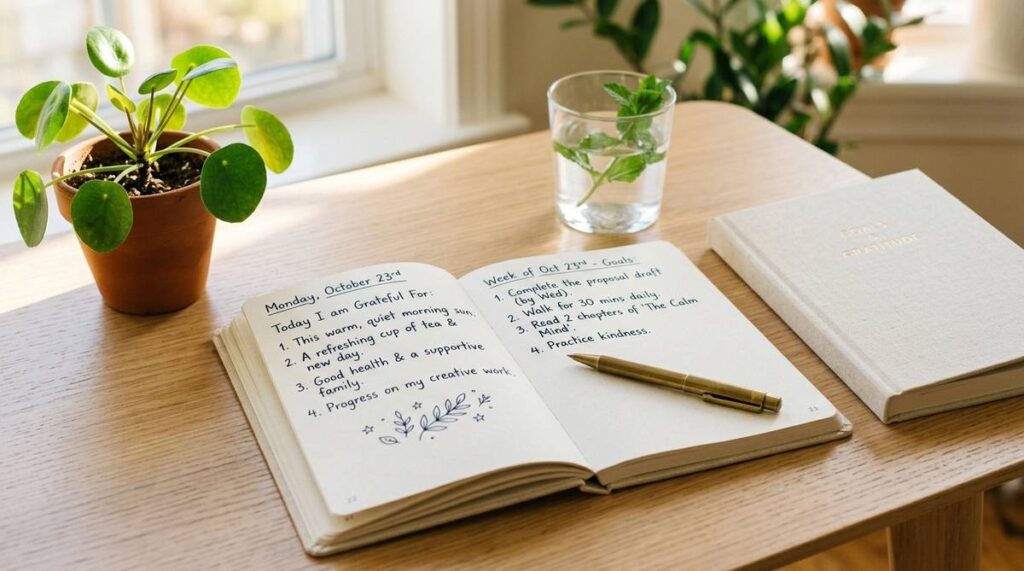 Monday, October 23rd
Today I am Grateful For:
1. This warm, quiet morning sun.
2. A refreshing cup of tea &
new day.
3. Good health & a supportive
family.
4. Progress on my creative work.
22
Week of Oct 23rd - Goals:
1. Complete the proposal draft
(by Wed).
2. Walk for 30 mins daily.
3. Read 2 chapters of 'The Calm
Mind'.
4. Practice kindness.
23
GRATITUDE